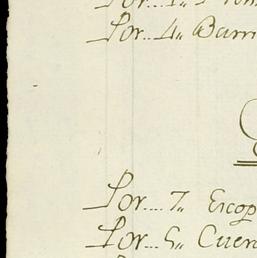 Por... 1,,
Por... 4,, Barri
Por.... 7,, Escop
Por... 5,, Cuer